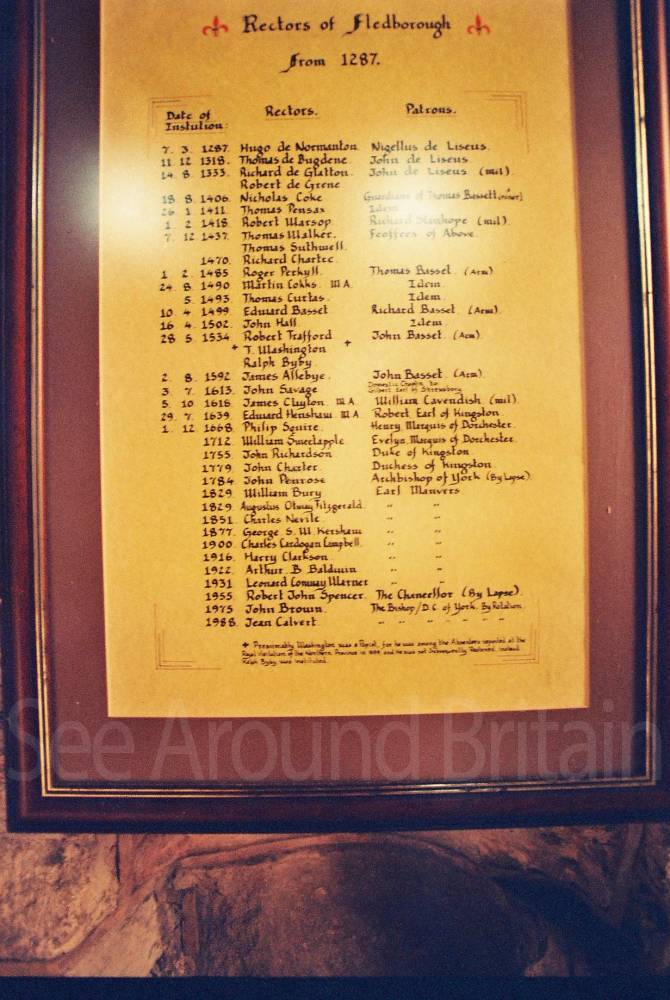 Rectors of Fledborough
From 1287.
Date of Instution: Rectors. Patrons.
7. 3. 1287. Hugo de Normanton. Nigellus de Liseus.
11 12 1318. Thomas de Bugdene. John de Liseus
14. 8. 1333. Richard de Glatton. John de Liseus (mil).
Robert de Grene
18 8 1406. Nicholas Coke Guardians of Thomas Bassett (minor)
26 1 1411. Thomas Pensax Idem
1 2 1418. Robert Warsop. Richard Stanhope (mil).
7. 12. 1437. Thomas Walker. Feoffees of Above.
Thomas Suthwell.
1470. Richard Chartre.
1 2. 1485 Roger Perkyll. Thomas Basset. (Arm)
24. 8 1490 Martin Cokks. M A. Idem.
5. 1493 Thomas Curtas. Idem.
10 4 1499 Edward Basset Richard Basset. (Arm).
16 4. 1502. John Hall. Idem
28 5. 1534. Robert Trafford John Basset. (Arm).
* T. Washington +
Ralph Byby.
2. 8. 1592 James Allebye. John Basset (Arm).
3. 7. 1613. John Savage Domestic Chapln. to Gilbert Earl of Shrewsbury
5. 10 1616. James Clayton. M A. William Cavendish. (mil).
29. 7. 1639. Edward Henshaw M A Robert. Earl of Kingston.
1. 12 1668. Philip Squire. Henry, Marquis of Dorchester.
1712. William Sweetapple. Evelyn. Marquis of Dorchester.
1755. John Richardson Duke of Kingston.
1779. John Charter. Duchess of Kingston.
1784 John Penrose Archbishop of York (By Lapse).
1829. William Bury Earl Manvers
1829. Augustus Otway Fitzgerald. " "
1851. Charles Nevile. " "
1877. George S. W. Kershaw " "
1900. Charles Cardogan Campbell. " "
1916. Harry Clarkson. " "
1922. Arthur. B. Balduin " "
1931 Leonard Conway Warner " "
1955. Robert John Spencer. The Chancellor (By Lapse).
1975 John Brown. The Bishop/D.C. of York. By Rotation.
1988. Jean Calvert. " " " " " "
+ Presumably Washington was a Papist, for he was among the Absentees reported at the
Royal Visitation of the Northern Province in and he was not Subsequently Restored, instead
Ralph Byby was instituted.
See Around Britain